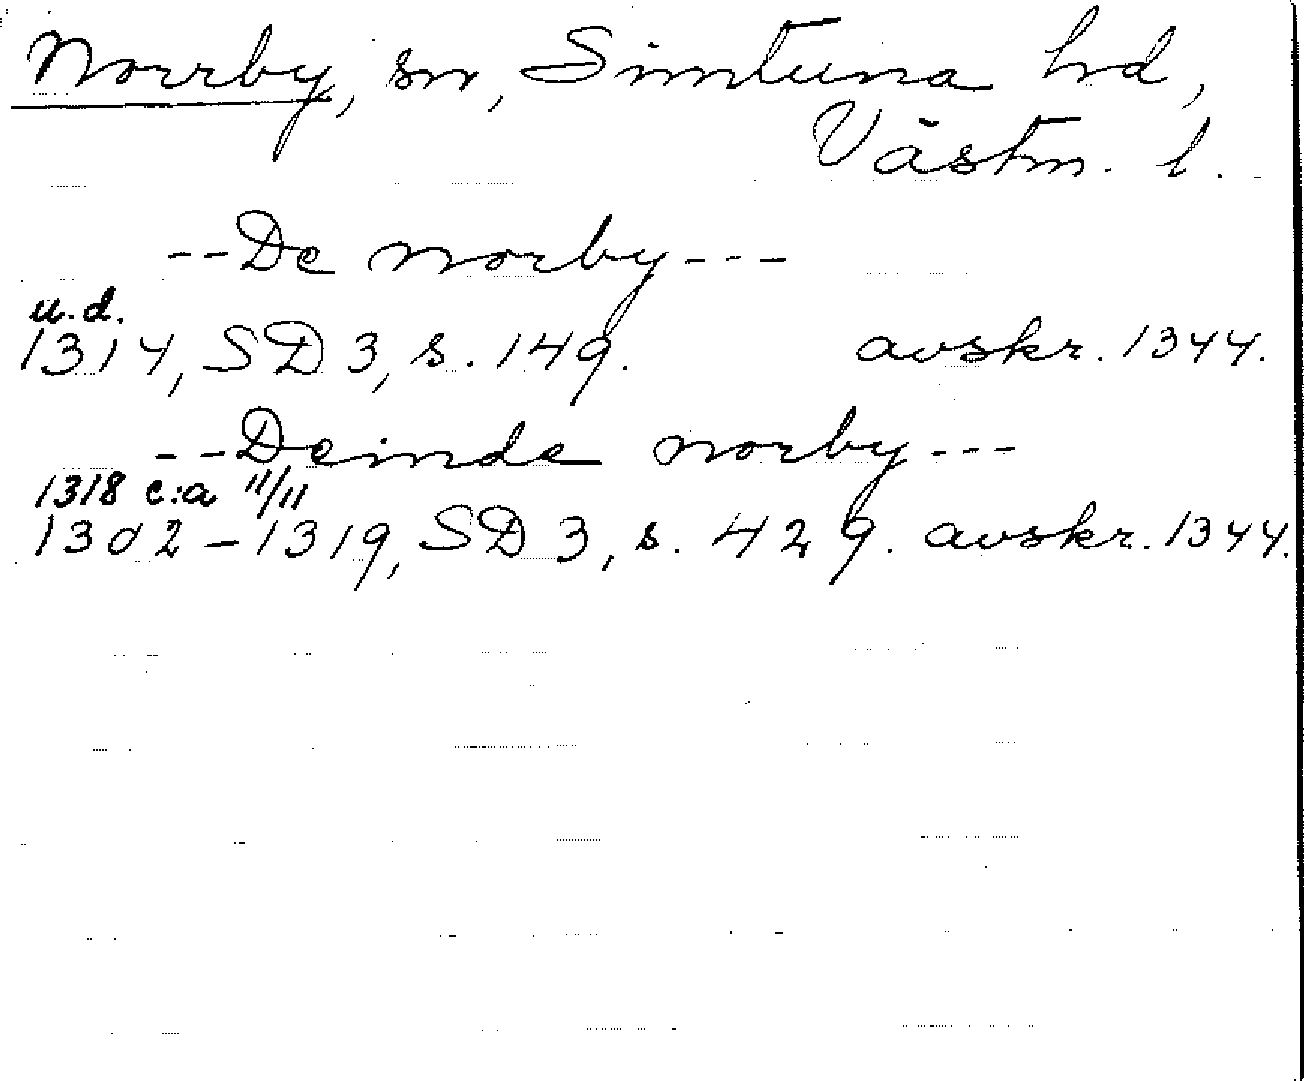 Norrby, sn, Simtuna hd,
Västm. l.
--De norby---
u.d.
1314, SD 3, s. 149. avskr. 1344.
--Deinde norby---
1318 c:a 11/11
1302-1319, SD 3, s. 429. avskr. 1344.